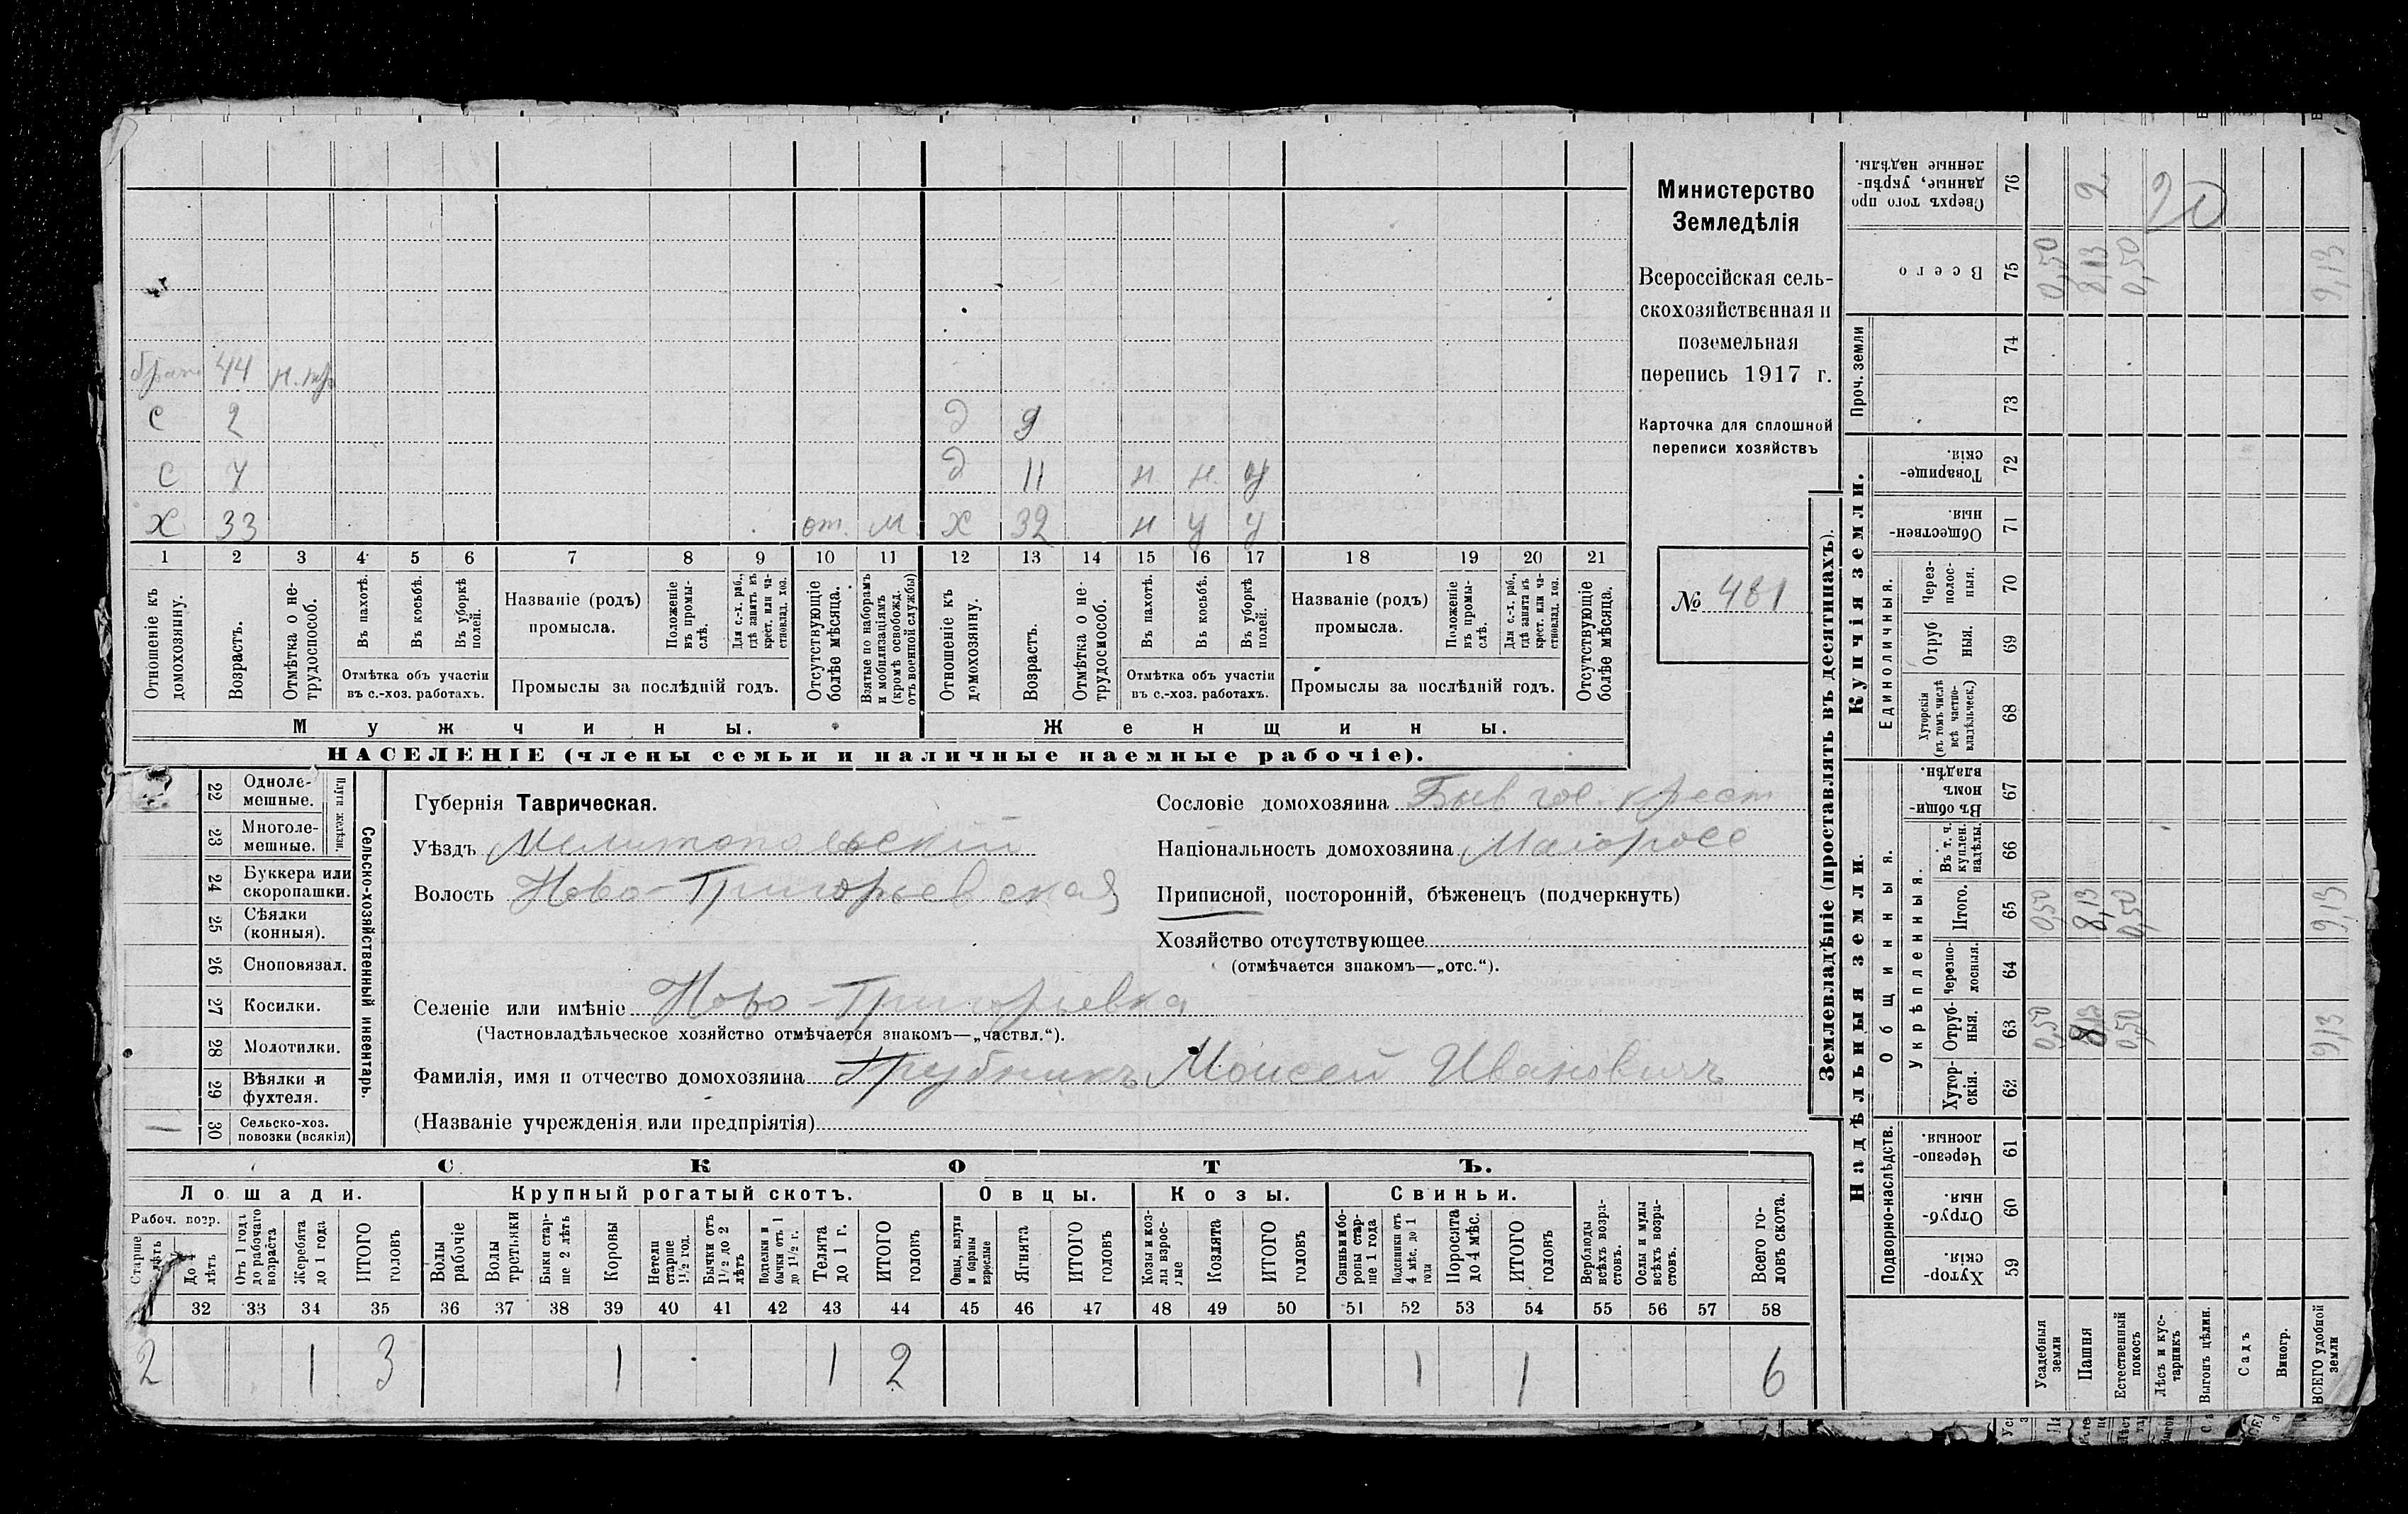 Министерство
Земледѣлія
Всероссійская сель-
скохозяйственная и
поземельная
перепись 1917 г.
Карточка для сплошной
переписи хозяйствъ
№ 481
брат 44
С 2 Д 9
С 4 Д 11 н н. у
Х 33 от. м Х 32 н у у
1 2 3 4 5 6 7 8 9 10 11 12 13 14 15 16 17 18 19 20 21
Отношеніе къ домохозяину.
Возрастъ.
Отмѣтка о не-трудоспособ.
Въ пахотѣ.
Въ косьбѣ.
Въ уборкѣ полей.
Отмѣтка объ участіи
въ с.-хоз. работахъ.
Названіе (родъ)
промысла.
Положеніе въ промы-слѣ.
Для с.-х. раб., гдѣ занятъ въ крест. или ча-стновлад. хоз.
Промыслы за послѣдній годъ.
Отсутствующіе болѣе мѣсяца.
Взятые по наборамъ и мобилизаціямъ (кромѣ освобожд. отъ военной службы)
Отношеніе къ домохозяину.
Возрастъ.
Отмѣтка о не-трудоспособ.
Въ пахотѣ.
Въ косьбѣ.
Въ уборкѣ полей.
Отмѣтка объ участіи
въ с.-хоз. работахъ.
Названіе (родъ)
промысла.
Положеніе въ промы-слѣ.
Для с.-х. раб., гдѣ занята въ крест. или ча-стновлад. хоз.
Промыслы за послѣдній годъ.
Отсутствующіе болѣе мѣсяца.
Мужчины. Женщины.
НАСЕЛЕНІЕ (члены семьи и наличные наемные рабочіе).
22 Одноле-мешные.
23 Многоле-мешные.
Плуги желѣзн.
24 Буккера или скоропашки.
25 Сѣялки (конныя).
26 Сноповязал.
27 Косилки.
28 Молотилки.
29 Вѣялки и фухтеля.
1 30 Сельско-хоз. повозки (всякія)
Сельско-хозяйственный инвентарь.
Губернія Таврическая.
Уѣздъ Мелитопольскій
Волость Ново-Григорьевская
Селеніе или имѣніе Ново-Григорьевка
(Частновладѣльческое хозяйство отмѣчается знакомъ—„частвл.“).
Фамилія, имя и отчество домохозяина Трубникъ Моисей Ивановичъ
(Названіе учрежденія или предпріятія)
Сословіе домохозяина Быв гос. крест
Національность домохозяина Малоросс
Приписной, посторонній, бѣженецъ (подчеркнуть)
Хозяйство отсутствующее
(отмѣчается знакомъ—„отс.“).
СКОТЪ.
Лошади. Крупный рогатый скотъ. Овцы. Козы. Свиньи.
Рабоч. возр.
Старше лѣтъ
До 4 лѣтъ
Отъ 1 года до рабочаго возраста
Жеребята до 1 года
ИТОГО головъ
Волы рабочіе
Волы третьяки
Быки стар-ше 2 лѣтъ
Коровы
Нетели старше 1½ год.
Бычки отъ 1½ до 2 лѣтъ
Подтелки и бычки отъ 1 до 1½ г.
Телята до 1 г.
ИТОГО головъ
Овцы, валухи и бараны взрослые
Ягнята
ИТОГО головъ
Козы и коз-лы взрос-лые
Козлята
ИТОГО головъ
Свиньи и бо-ровы стар-ше 1 года
Подсвинки отъ 4 мѣс. до 1 года
Поросята до 4 мѣс.
ИТОГО головъ
Верблюды всѣхъ возра-стовъ.
Ослы и мулы всѣхъ возра-стовъ.
Всего го-ловъ скота.
32 33 34 35 36 37 38 39 40 41 42 43 44 45 46 47 48 49 50 51 52 53 54 55 56 57 58
2 1 3 1 1 2 1 1 6
Землевладѣніе (проставлять въ десятинахъ).
Надѣльныя земли. Купчія земли. Проч. земли
Подворно-наслѣдств. Общинныя. Укрѣпленныя. Единоличныя.
Хутор-скія. 59
Отруб-ныя. 60
Черезпо-лосныя. 61
Хутор-скія. 62
Отруб-ныя. 63
Черезпо-лосныя. 64
Итого. 65
Въ т. ч. куплен. надѣлы. 66
Въ общи-номъ владѣн. 67
Хуторскія (въ томъ числѣ всѣ частно-владѣльческ.) 68
Отруб ныя. 69
Через-полос-ныя. 70
Обществен-ныя. 71
Товарище-скія. 72
73
74
Всего 75
Сверхъ того про данные, укрѣп-ленные надѣлы. 76
Усадебныя земли 0,50 0,50 0,50
Пашня 8,13 8,13 8,13 2
Естественный покосъ 0,50 0,50 0,50
Лѣсъ и кус-тарникъ
Выгонъ цѣлин.
Садъ
Виногр.
ВСЕГО удобной земли 9,13 9,13 9,13
20